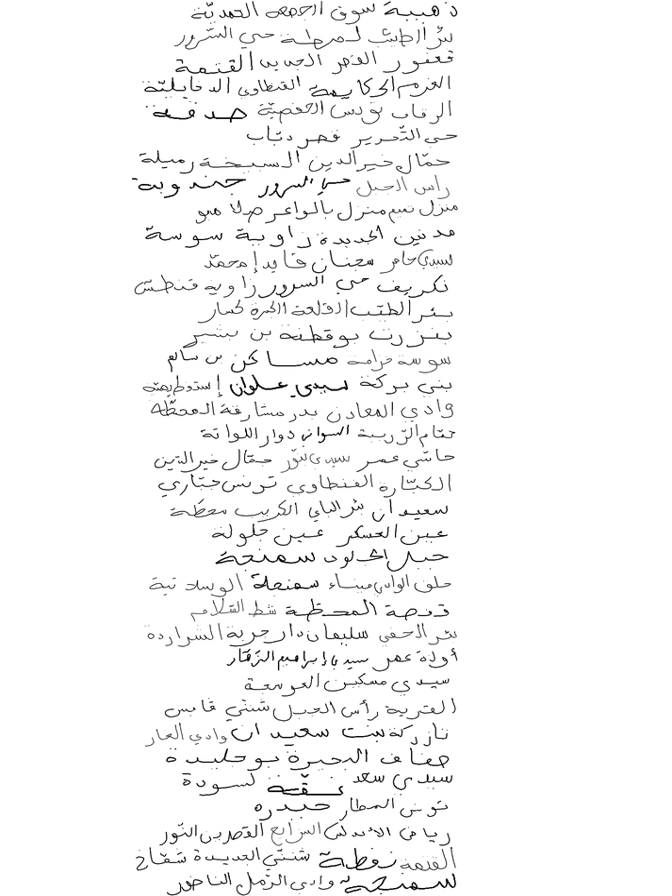 ذهيبة سوق الجمعة الحمديّة
بئر الطيب لمرطة حي السّرور
قعفور القصر الجديد القنمة
العزم الحكايمة القنطاوي الدخايليّة
الرقاب تونس الحفصيّة صدقة
حي التّحرير قصر دبّاب
جمّال خير الدين السبخة رميلة
راس الجبل حي السرور جندوبة
منزل تميم منزل بالواعر
مدنين الجديدة زاوية سوسة
سيدي عامر معتان قايد امحمّد
تكريف حي السرور زاوية قنطش
بئر الطيّب القلعة الحمرة كسار
بنزرت بوقطفة بن بشير
سوسة خزامة مساكن بن سالم
بني بركة سيدي علوان إستوطيهيّة
وادي المعادن بدر مشارقة المحطّة
حمّام الزّريبة السواني دوار اللواتة
حاسي عمر سيدي نوّر جمّال خير الدّين
الكتّارة القنطاوي تونس جبّاري
سعيدان بئر الباي الكريب محطّة
عين العسكر عين جلولة
جبل الجلود سمنجة
حلق الوادي ميناء سمنجة الوسلاتية
قفصة المحطّة شط السّلام
بئر الحفي سليمان دار جربة الشراردة
أولاد عمر سيدي إبراهيم الزهّار
سيدي مسكين العوسجة
القرية رأس الجبل شنني قابس
تازركة بنت سعيدان وادي الغار
ضفاف البحيرة بوجليدة
سيدي سعد عقّة لسودة
تونس المطار حيدرة
رياض الأندلس الرابع القصرين النّور
القنمة نفطة شنني الجديدة شقّاخ
سمنجة وادي الرّمل الناظور